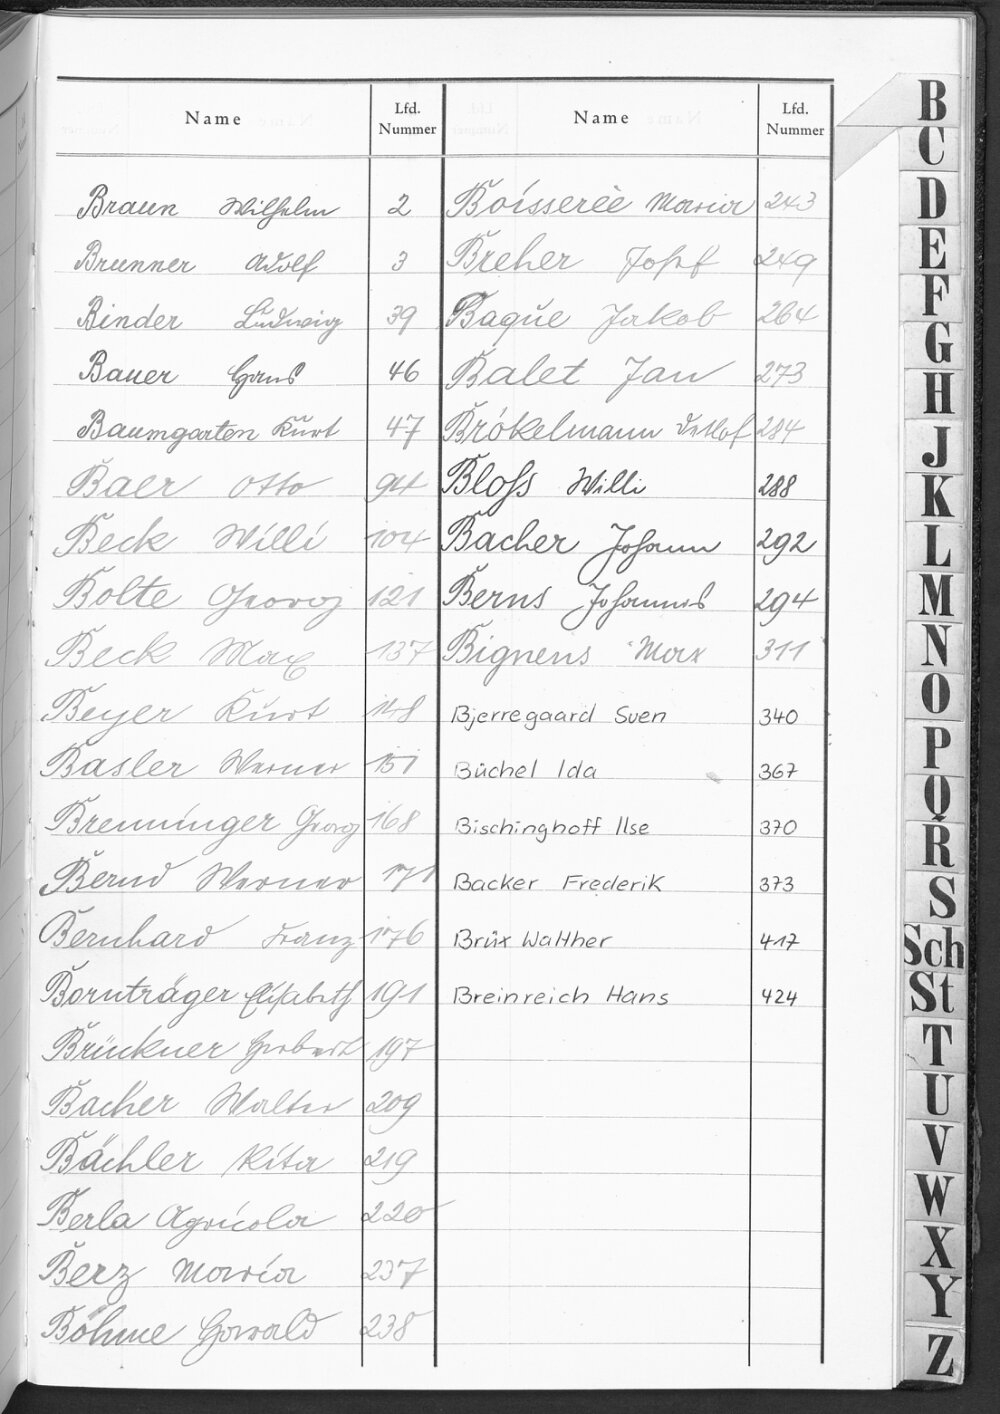 Name Lfd. Nummer
Braun Wilhelm 2
Brunner Adolf 3
Binder Ludwig 39
Bauer Hans 46
Baumgarten Kurt 47
Baer Otto 94
Beck Willi 104
Bolte Georg 121
Beck Max 137
Beyer Kurt 148
Basler Werner 151
Brenninger Georg 168
Bernd Werner 171
Bernhard Franz 176
Bornträger Elisabeth 191
Brückner Herbert 197
Bacher Walter 209
Bächler Rita 219
Berla Agricola 220
Berz Maria 237
Böhme Horwald 238
Name Lfd. Nummer
Boisserée Maria 243
Breher Josef 249
Baqué Jakob 264
Balet Jan 273
Brökelmann Detlof 284
Bloß Willi 288
Bacher Johann 292
Berns Johannes 294
Bignens Max 311
Bjerregaard Sven 340
Büchel Ida 367
Bischinghoff Ilse 370
Backer Frederik 373
Brüx Walther 417
Breinreich Hans 424
B
C
D
E
F
G
H
J
K
L
M
N
O
P
Q
R
S
Sch
St
T
U
V
W
X
Y
Z